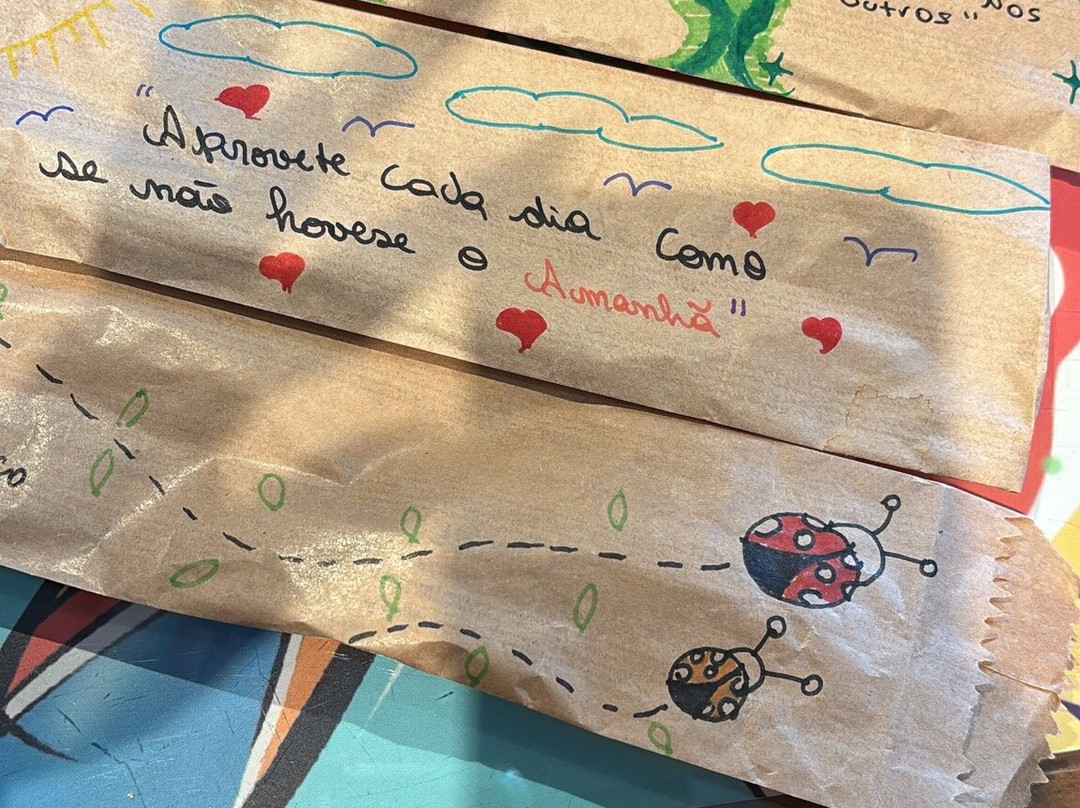 outros" Nos
"Aprovete cada dia como
se não hovese o Amanhã"
ão